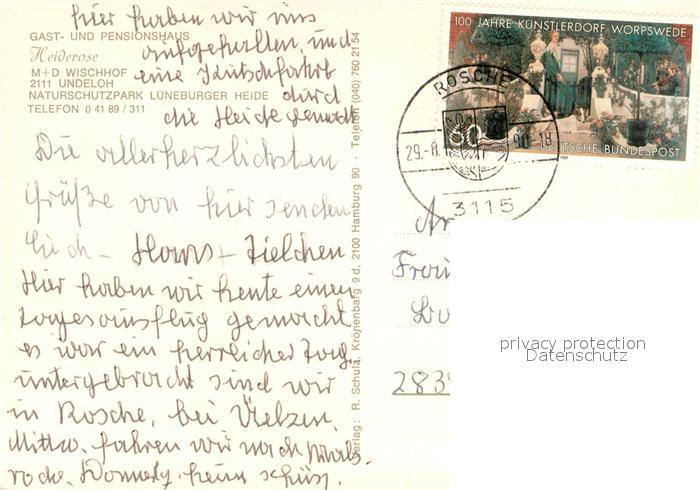 hier haben wir uns
aufgehalten und
eine Kutschfahrt
durch
die Heide gemacht
GAST- UND PENSIONSHAUS
Heiderose
M+D WISCHHOF
2111 UNDELOH
NATURSCHUTZPARK LÜNEBURGER HEIDE
TELEFON 0 41 89 / 311
Die allerherzlichsten
Grüße von hier senden
Euch - Hans +
Hier haben wir heute einen
Tagesausflug gemacht
es war ein herrlicher Tag.
untergebracht sind wir
in Rosche, bei Uelzen.
Mittw. fahren wir nach
rode. heim
Verlag: R. Schulz, Kronenbarg 9 d, 2100 Hamburg 90 · Telefon (040) 760 21 54
100 JAHRE KÜNSTLERDORF WORPSWEDE
60
DEUTSCHE BUNDESPOST
1989
ROSCHE
29.-8. 90.-18
3115
Frau
283
privacy protection
Datenschutz